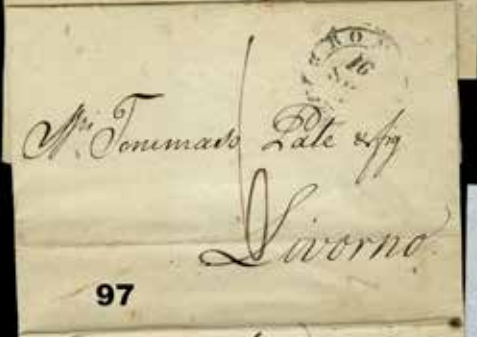 RO
16
Sri Tommaso Pate & fig
Livorno
97